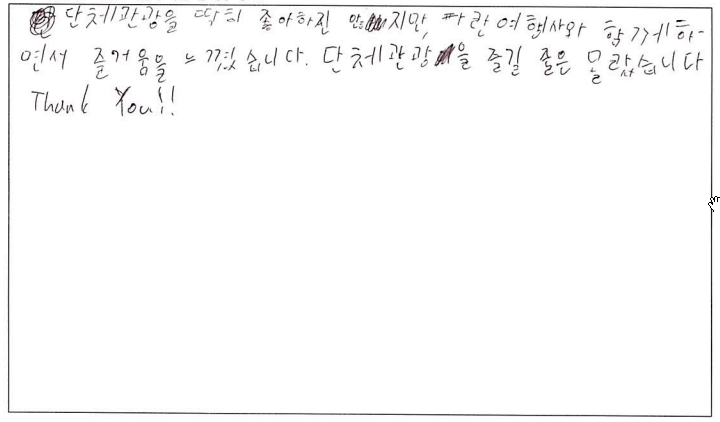 단체관광을 딱히 좋아하진 않지만, 파란여행사와 함께하
면서 즐거움을 느꼈습니다. 단체관광을 즐길 줄은 몰랐습니다
Thank You!!